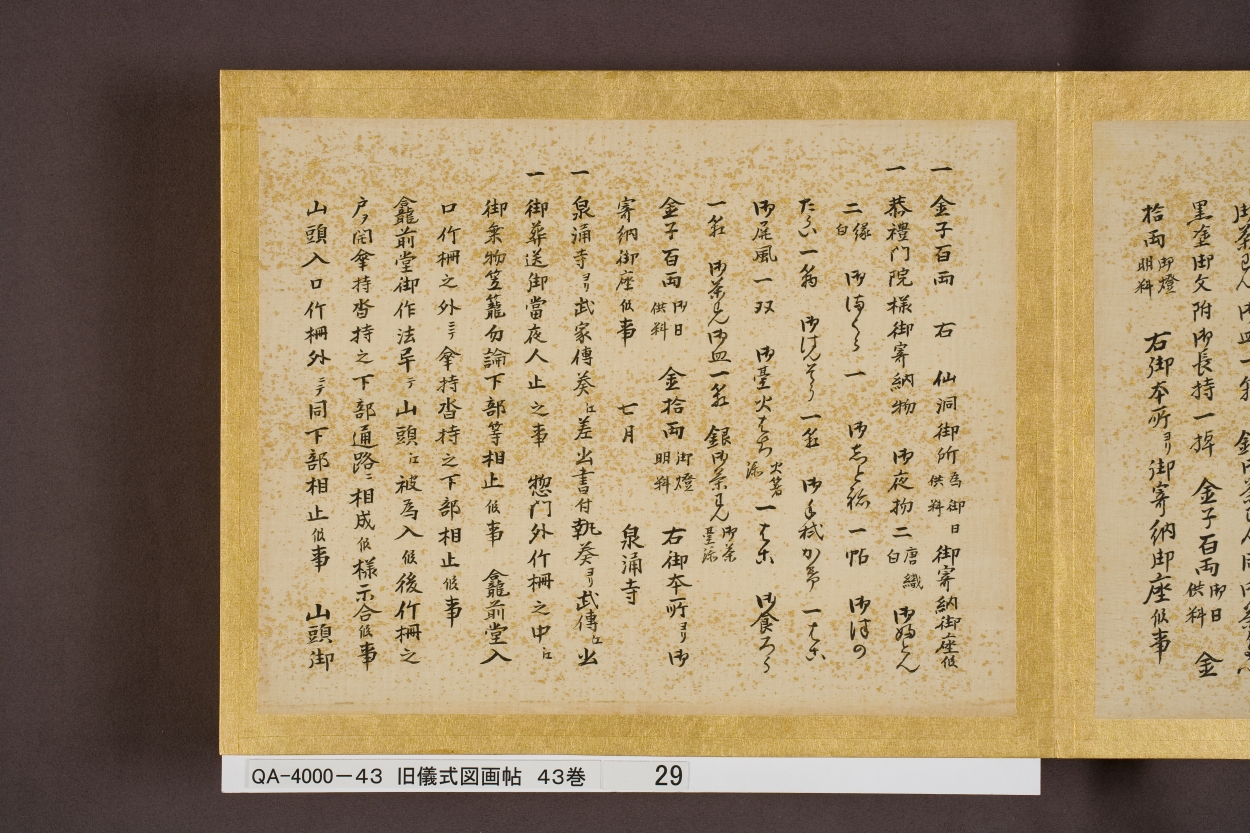 黒塗御文附御長持一棹　金子百両御日供料　金
拾両御燈明料　右御本所ゟ御寄納御座候事
一　金子百両　右　仙洞御所為御日供料御寄納御座候
一　恭禮門院様御寄納物　御夜物二唐織白　御ふとん
二緑白　御まくら一　御しとね一帖　御ほの
たらい一箇　御けんそう一箇　御手拭かけ一
御屏風一双　御臺火はち火箸添　一はこ　御食ろう
一箇　御茶わん御皿一箇　銀御茶わん御茶臺添
金子百両御日供料　金拾両御燈明料　右御本所ゟ御
寄納御座候事　七月　泉涌寺
一　泉涌寺ゟ武家傳葵江差出書付執葵ゟ武傳江出
一　御葬送御當夜人止之事　惣門外竹柵之中江
御乗物笠籠勿論下部等相止候事　龕前堂入
口竹柵之外ニテ傘持沓持之下部相止候事
龕前堂御作法畢テ山頭江被為入候後竹柵之
戸ヲ開傘持沓持之下部通路ニ相成候様示合候事
山頭入口竹柵外ニテ同下部相止候事　山頭御
QA-4000-43 旧儀式図画帖 43巻　29